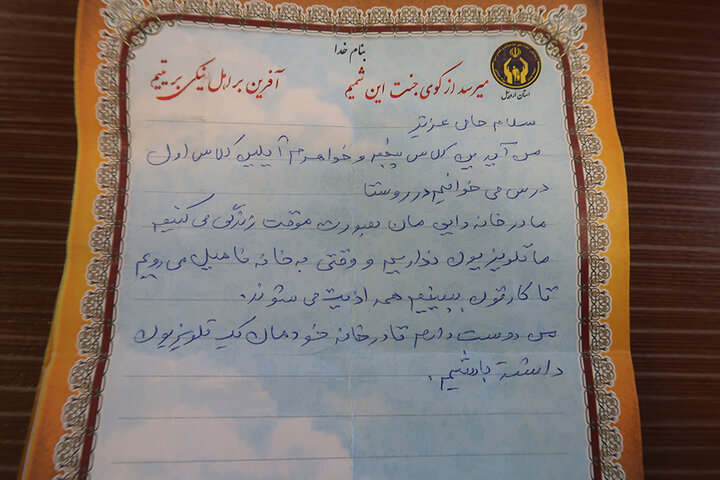 بنام خدا
میرسد از کوی جنت این شمیم آفرین بر اهل نیکی بر یتیم
استان اردبیل
سلام حامی عزیز
من آیدین کلاس پنجم و خواهرم آیلین کلاس اول
درس می خوانیم در روستا
ما در خانه دایی مان بصورت موقت زندگی می کنیم
ما تلویزیون نداریم و وقتی به خانه فامیل می رویم
تا کارتون ببینیم همه اذیت می شوند.
من دوست دارم تا در خانه خودمان یک تلویزیون
داشته باشیم.